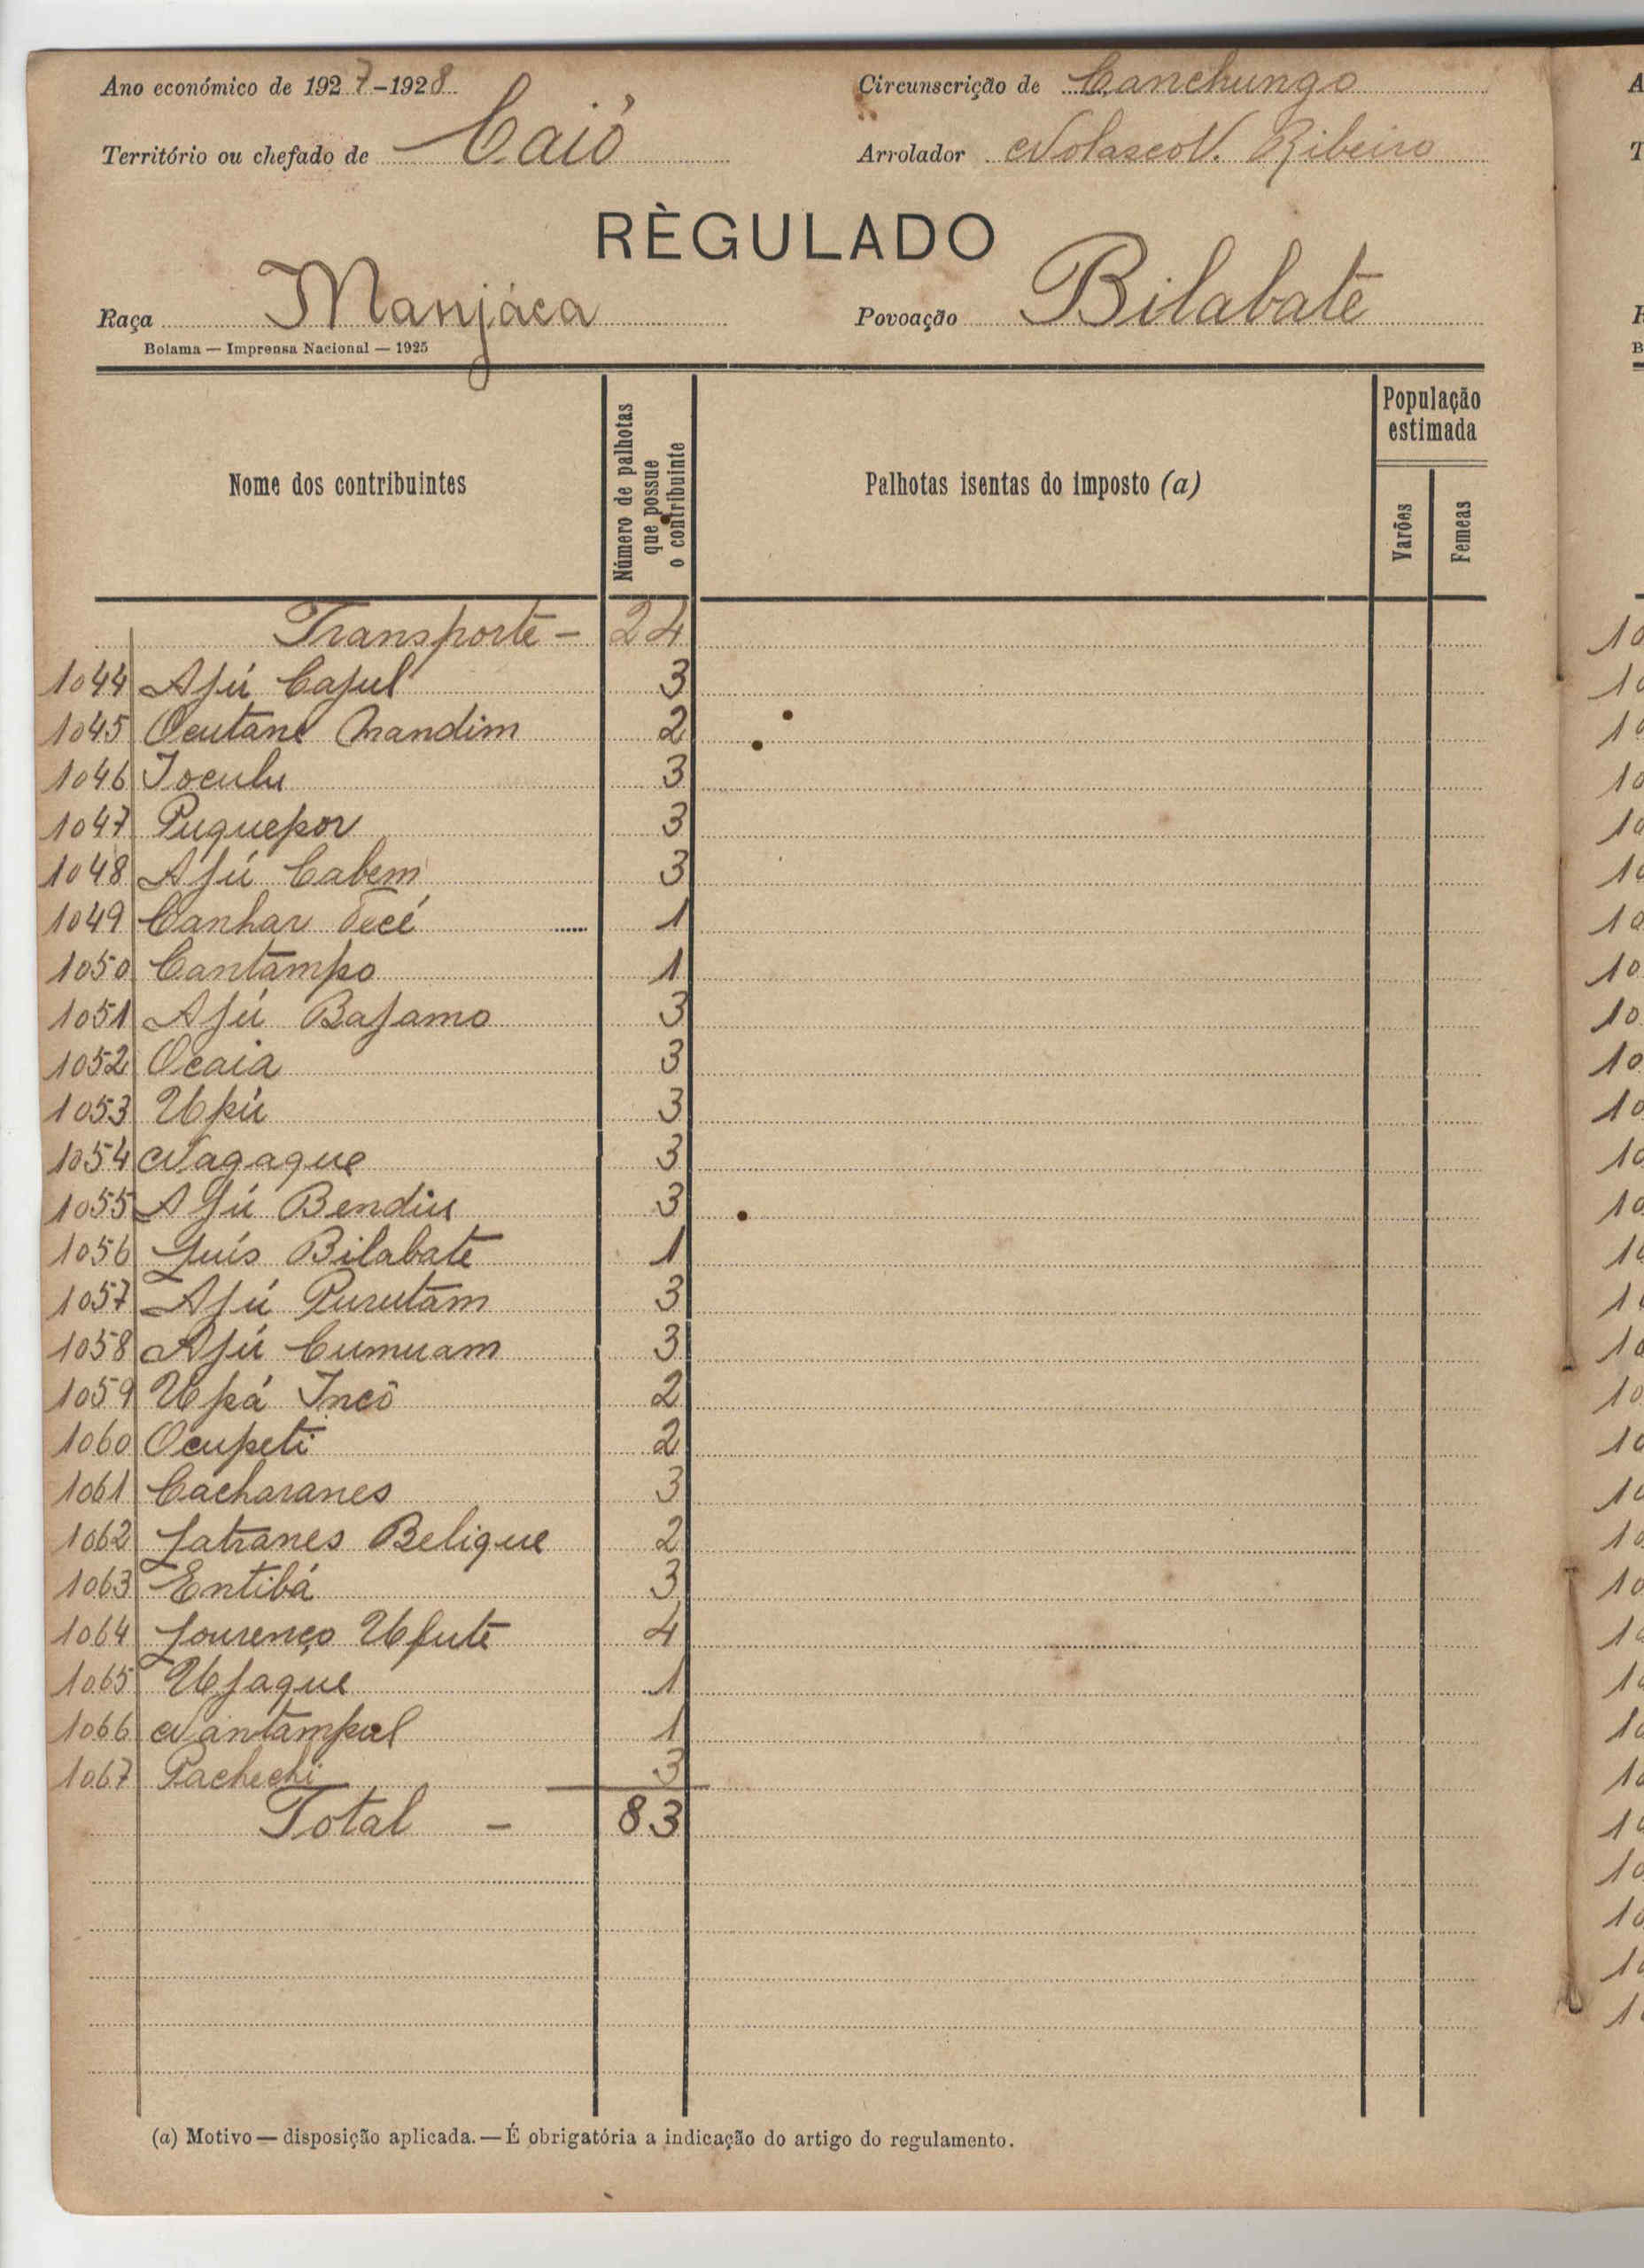 Ano económico de 1927-1928
Circunscrição de Canchungo
Território ou chefado de Caió
Arrolador Nolasco N. Ribeiro
RÈGULADO
Raça Manjáca
Povoação Bilabate
Bolama — Imprensa Nacional — 1925
Nome dos contribuintes
Número de palhotas que possue o contribuinte
Palhotas isentas do imposto (a)
População estimada
Varões
Femeas
Transporte - 24
1044 Ajú Cajul 3
1045 Ocutane Nandim 2
1046 Joculu 3
1047 Puquepor 3
1048 Ajú Cabem 3
1049 Canhar 1
1050 Cantampo 1
1051 Ajú Bajamo 3
1052 Ocaia 3
1053 Upú 3
1054 Nagaque 3
1055 Ajú Bendiu 3
1056 Luís Bilabate 1
1057 Ajú Purutam 3
1058 Ajú Cumuam 3
1059 Upá Incô 2
1060 Ocupeti 2
1061 Cacharanes 3
1062 Latranes Belique 2
1063 Entibá 3
1064 Lourenço Ufute 4
1065 Ujaque 1
1066 Nantampal 1
1067 Pachechi 3
Total - 83
(a) Motivo — disposição aplicada. — É obrigatória a indicação do artigo do regulamento.